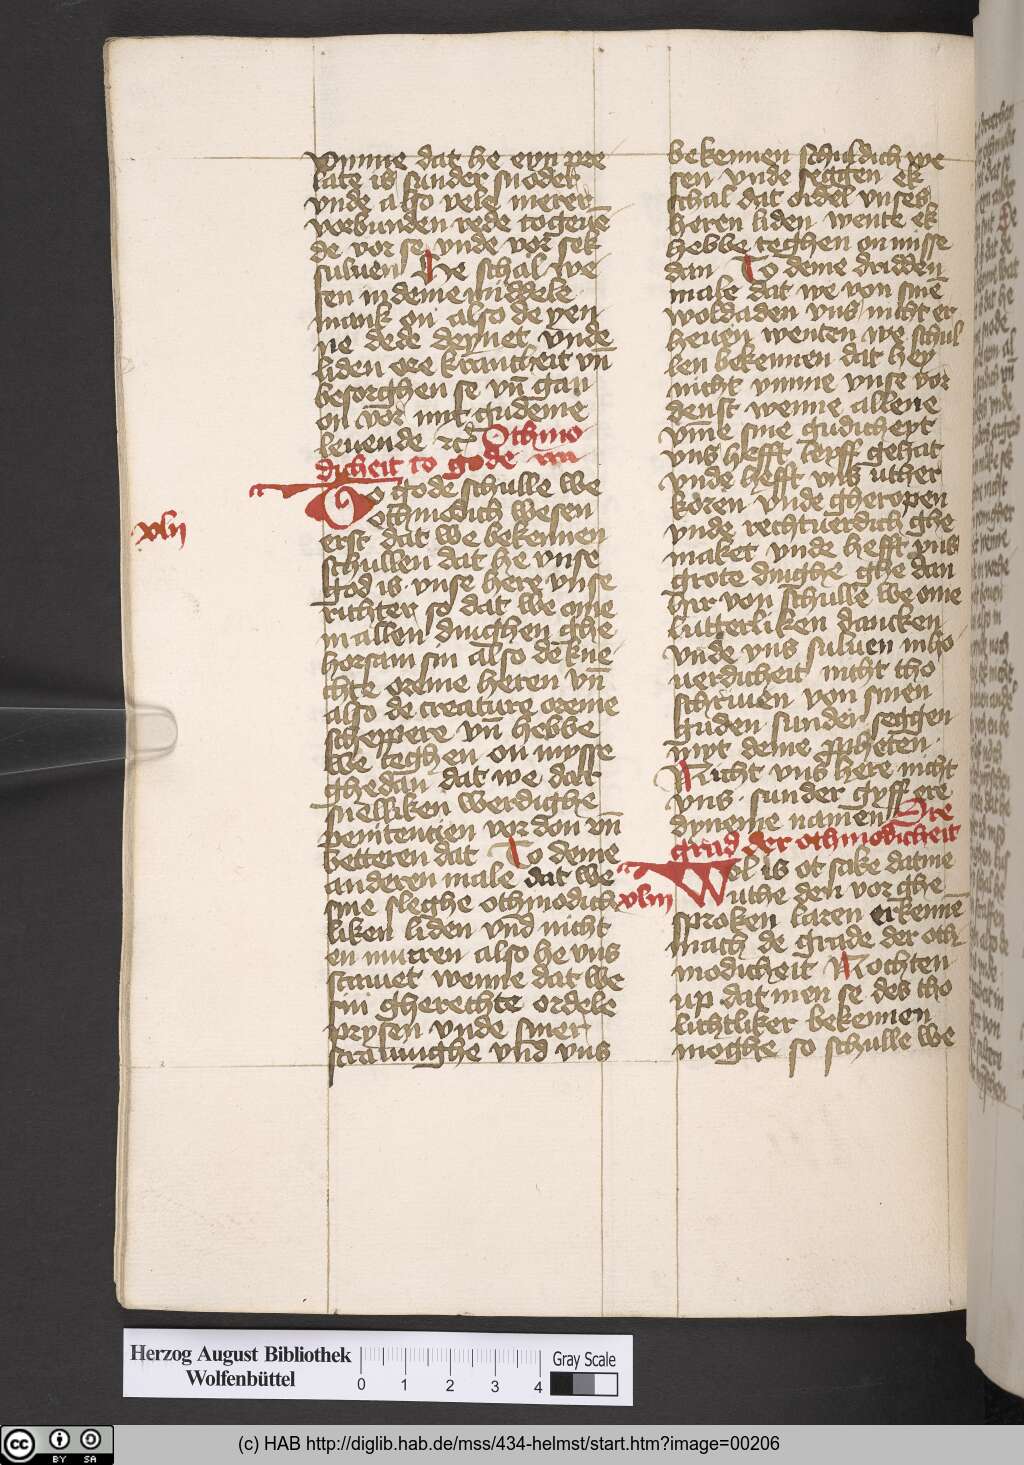 vmme dat he eyn pre
late is sunder snodel
vnde also vele merer
vorbunden rede togeuē
de vor se vnde vor sek
suluen He schal we
sen in deme middele
mank on also de yen
ne dede deynet vnde
liden ere krancheit vn̄
besorghen se vn̄ gan
on vor mit gudeme
leuende rc̄ Othmo
dicheit to gode
xlij
To gode schulle we
othmodich wesen
erst dat we bekennen
schullen dat he vnse
god is vnse here vnse
richter so dat we ome
in allen dinghen ghe
horsam sin also de kne
chte oreme heren vn̄
also de creature oreme
scheppere vn̄ hebbe
we teghen on mysse
ghedan dat we dat
snelliken werdighe
penitencien vor don vn̄
betteren dat To deme
anderen male dat we
sine sleghe othmodich
liken liden vnd nicht
en murren also he vns
strauet wenne dat we
sin gherechte ordele
prysen vnde siner
straffinghe vnd vns
bekennen schuldich we
sen vnde seggen ek
schal dat ordel vnses
heren liden wente ek
hebbe teghen on misse
dan To deme dridden
male dat we von sinē
woldaden vns nicht er
heuen wenten we schul
len bekennen dat hey
nicht vmme vnse vor
denst wenne allene
vm̄e sine gudicheyt
vns hefft
vnde hefft vns uther
koren vnde gheropen
vnde rechtuerdich ghe
maket vnde hefft vns
grote dinghe ghe dan
hir von schulle we ome
lutterliken dancken
vnde vns suluen in ho
uerdicheit nicht tho
schriuen von sinen
guden sunder seggen
myt deme ꝓpheten
Nicht vns here nicht
vns sunder gyff ere
dyneme namen Dre
grad der othmodicheit
xliij
Wol is ot sake dat me
uthe den vor ghe
sproken laren erkennē
mach de grade der oth
modicheit Nochten
up dat men se des tho
lichtliker bekennen
moghe so schulle we
Herzog August Bibliothek
Wolfenbüttel
0 1 2 3 4
Gray Scale
(c) HAB http://diglib.hab.de/mss/434-helmst/start.htm?image=00206
cc BY SA